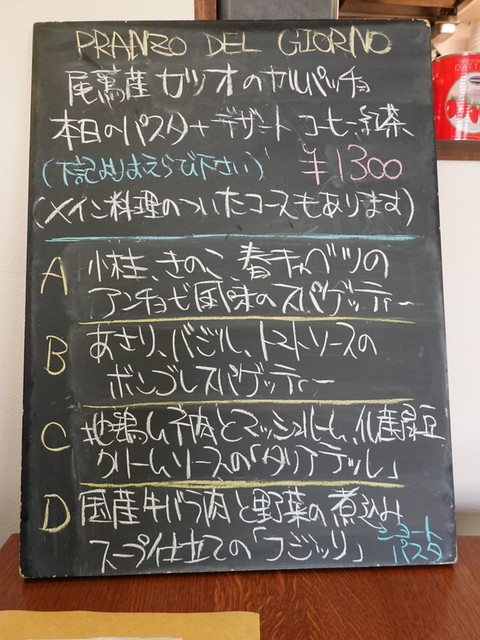 PRANZO DEL GIORNO
尾鷲産カツオのカルパッチョ
本日のパスタ+デザート コーヒー紅茶
(下記よりおえらび下さい) ¥1300
(メイン料理のついたコースもあります)
A 小柱、きのこ、春キャベツの
アンチョビ風味のスパゲッティー
B あさり、バジル、トマトソースの
ボンゴレスパゲッティー
C 地鶏ムネ肉とマッシュルーム、仏産緑豆
クリームソースの「タリアテッレ」
D 国産牛バラ肉と野菜の煮込み
スープ仕立ての「フジッリ」 ショート
パスタ